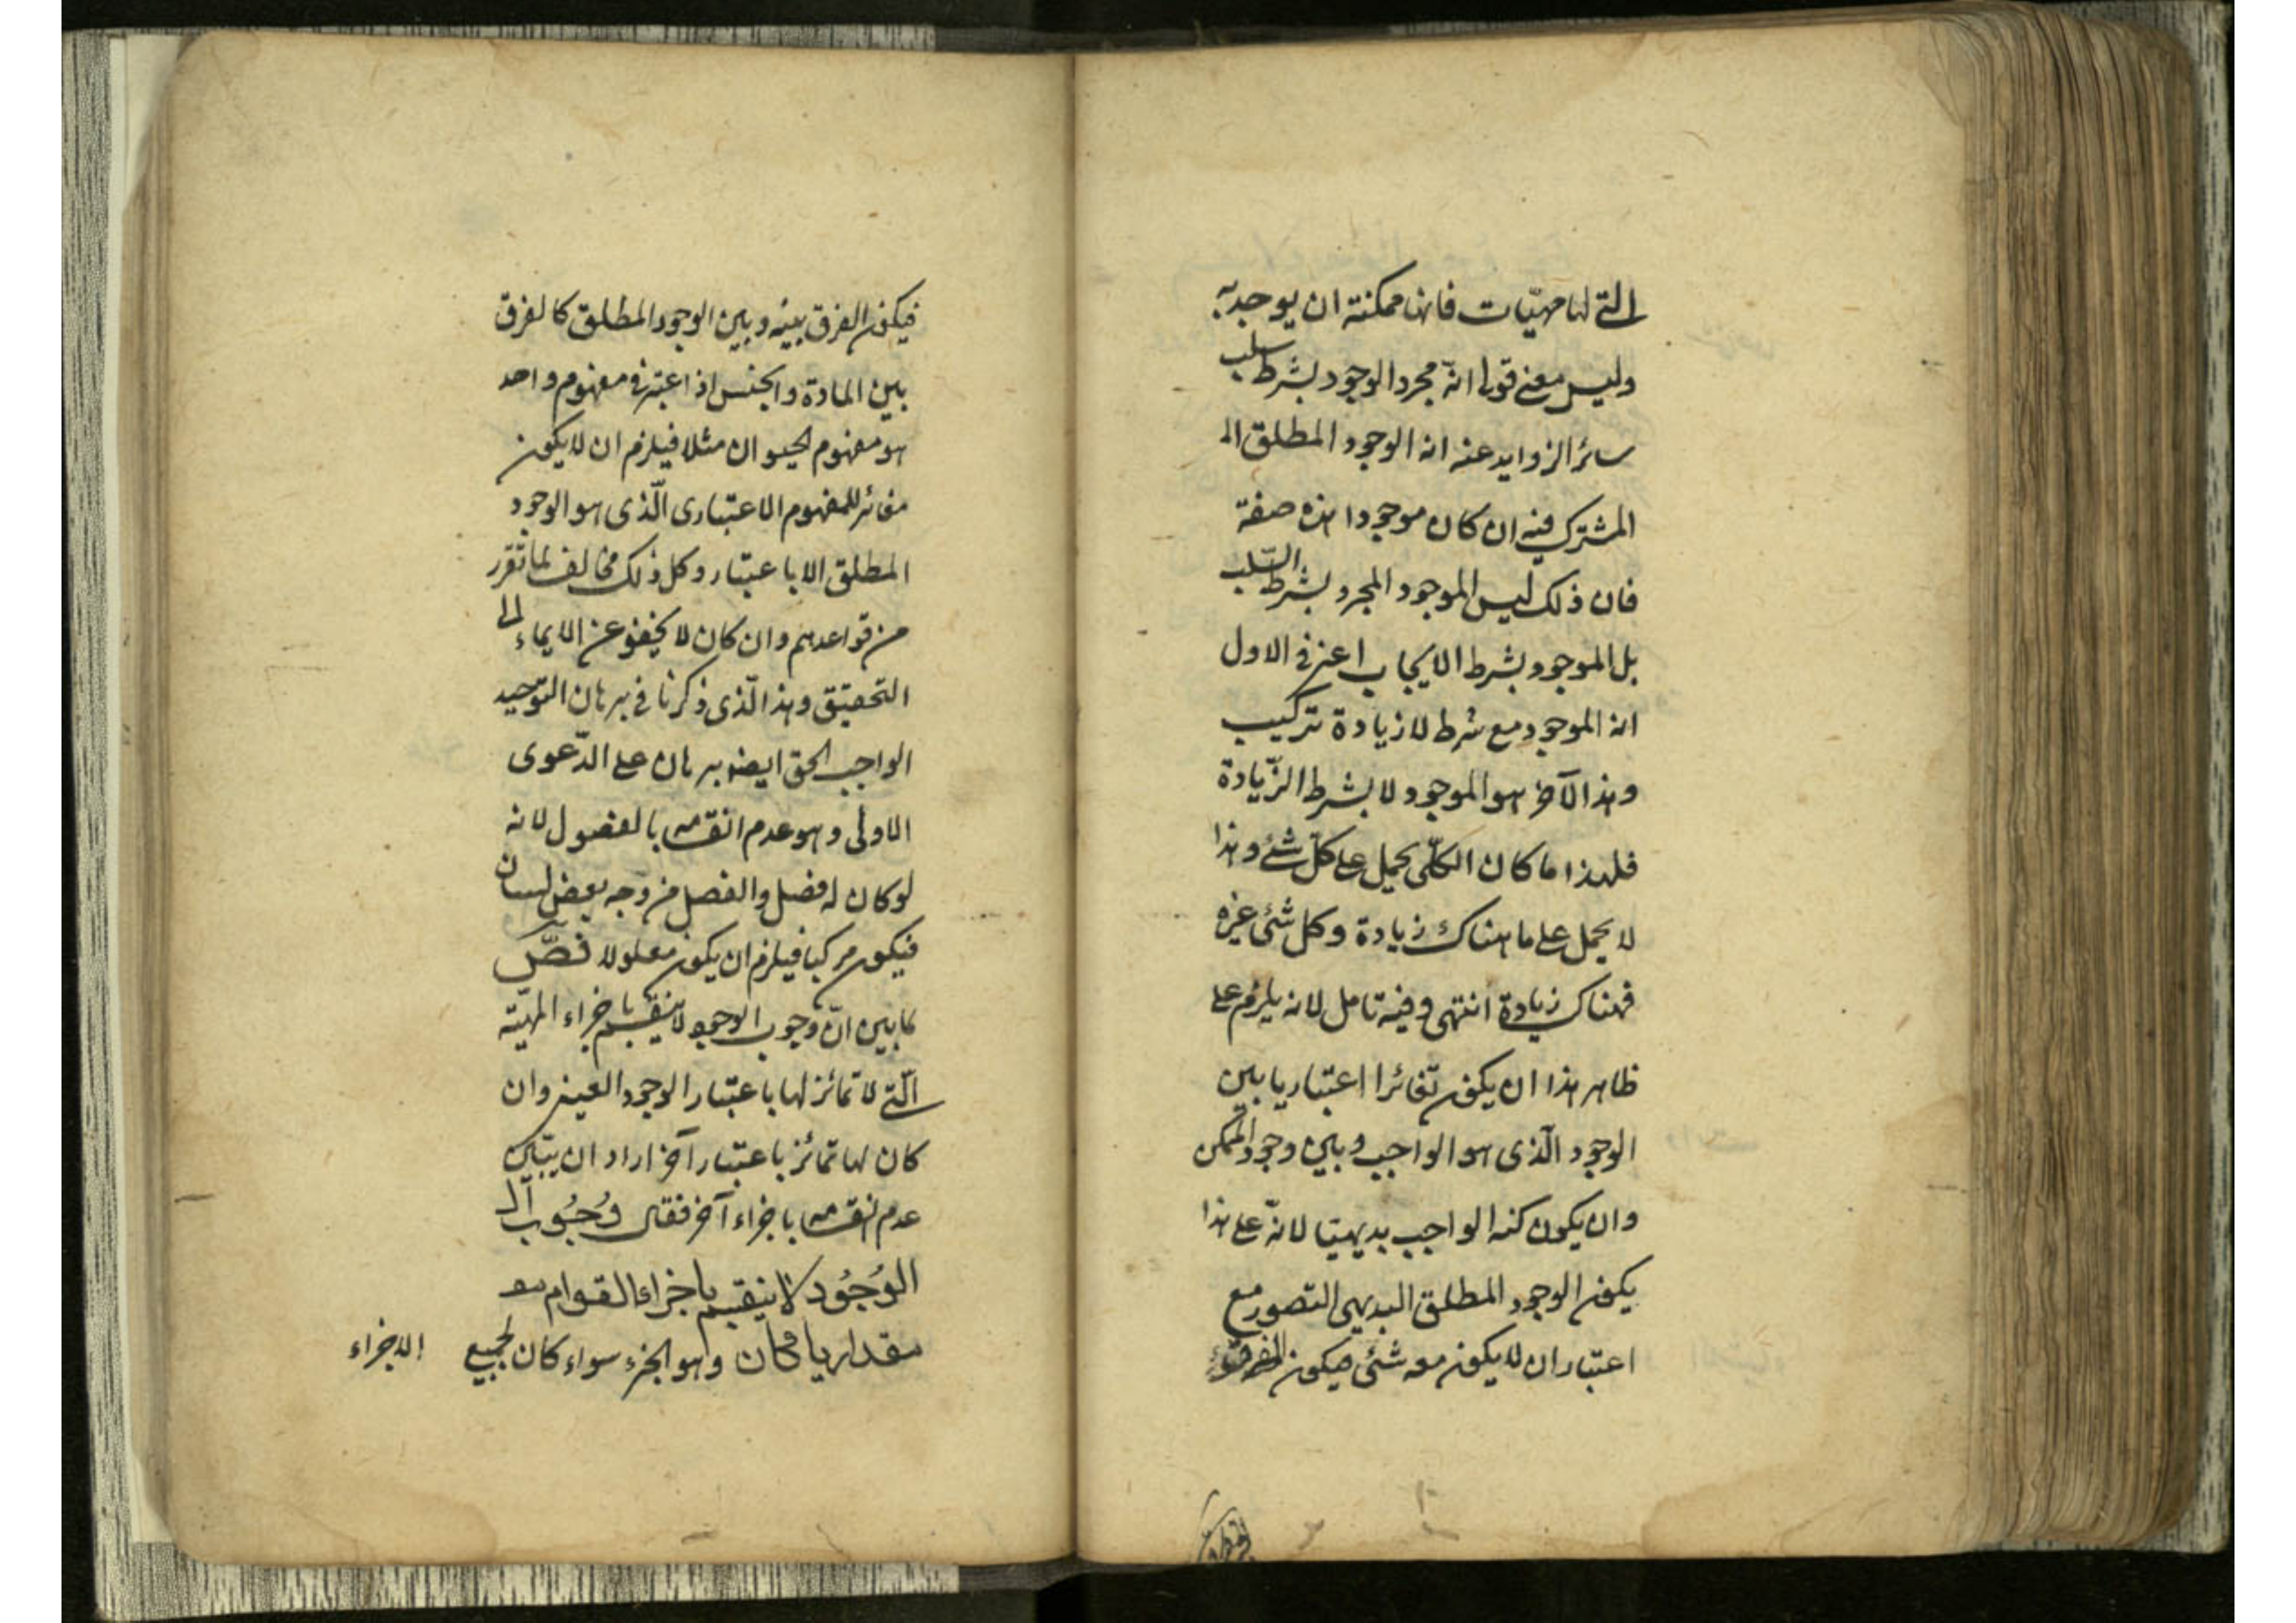 التى لها مهيّات فانها ممكنة ان يوجد به
وليس معنى قولى انه مجرد الوجود بشرط سلب
سائر الزوايد عنه انه الوجود المطلق ال
المشترك فيه ان كان موجودا هذه صفة
فان ذلك ليس الموجود المجرد بشرط السّلب
بل الموجود بشرط الايجاب اعنى فى الاول
انه الموجود مع شرط لا زيادة تركيب
وهذا الآخر هو الموجود لا بشرط الزّيادة
فلهذا ما كان الكلّى يحمل على كلّ شئ وهذا
لا يحمل على ما هناك زيادة وكل شئ غيره
فهناك زيادة انتهى وفيه تامل لانه يلزم على
ظاهر هذا ان يكون تغائرا اعتباريا بين
الوجود الّذى هو الواجب وبين وجود الممكن
وان يكون كنه الواجب بديهيا لانّه على هذا
يكون الوجود المطلق البديهى التصور مع
اعتبار ان لا يكون معه شئ فيكون
فيكون الفرق بينه وبين الوجود المطلق كالفرق
بين المادة والجنس اذا اعتبر فى مفهوم واحد
هو مفهوم الحيوان مثلا فيلزم ان لا يكون
مغائر للمفهوم الاعتبارى الّذى هو الوجود
المطلق الا باعتبار وكل ذلك مخالف لما تقرر
من قواعدهم وان كان لا يخفو عن الايماء الى
التحقيق وهذا الّذى ذكرنا فى برهان التوحيد
الواجب الحق ايضا برهان على الدّعوى
الاولى وهو عدم انقسامه بالفصول لانه
لو كان له فصل والفصل من وجه بعض لسان
فيكون مركبا فيلزم ان يكون معلولا فصّ
كما بين انّ وجوب الوجود لا ينقسم باجزاء المهيّة
الّتى لا تمائز لها باعتبار الوجود العينى وان
كان لها تمائز باعتبار آخر اراد ان يبيّن
عدم انقسامه باجزاء آخر فقال وُجُوب ال
الوُجُود لا ينقسم باجزاء القوام سو
مقداريا كان وهو الجزء سواء كان لجميع
الاجزاء